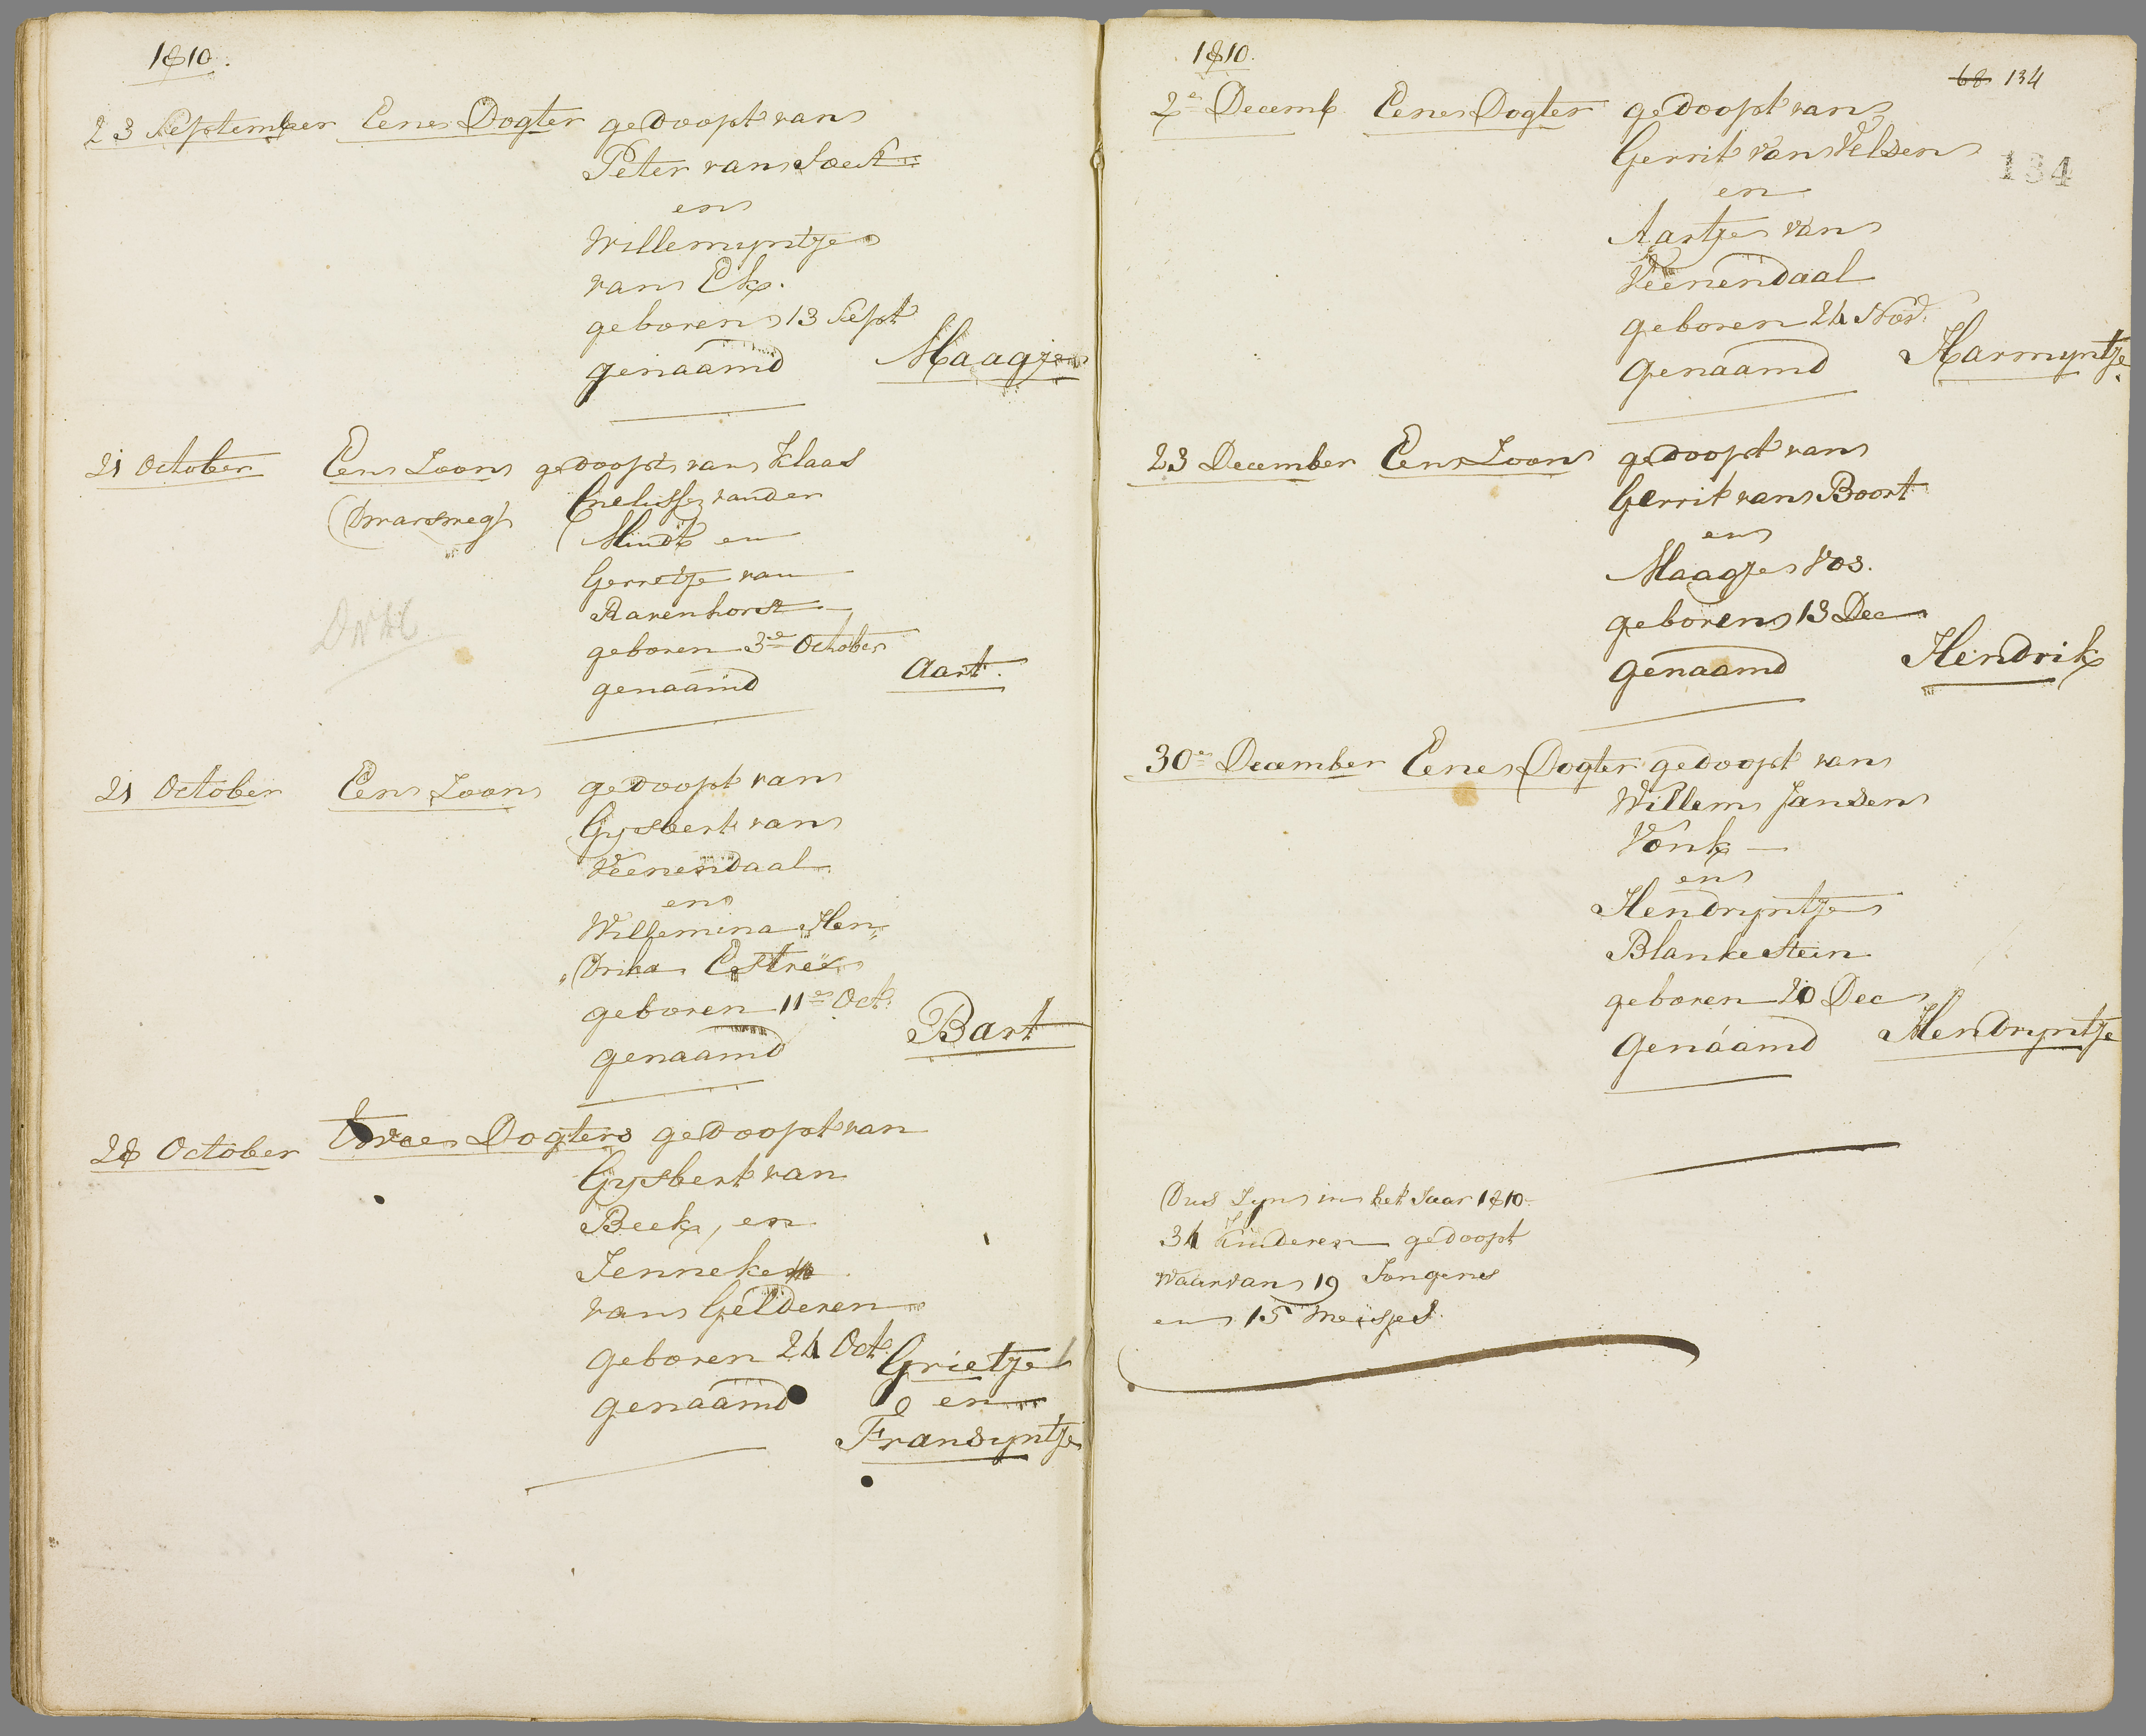 1810.
23 September Eene Dogter gedoopt van
Peter van Soest
en
Willemyntje
van Ek.
geboren 13 Sept
genaamd Maagje
21 October Een Zoon gedoopt van Klaas
(Dwarsweg) Cnelisse vander
Mindt en
Gerretje van
Ravenhorst
geboren 3de October
genaamd Aart.
21 October Een Zoon gedoopt van
Gysbert van
Veenendaal
en
Willemina Hen„
„drika Estrex
geboren 11e Oct.
genaamd Bart
28 October Twee Dogters gedoopt van
Gysbert van
Beek, en
Jenneke
van Gelderen
geboren 24 Oct.
genaamd Grietje
en
Fransyntje
1810.
68 134
134
2e Decemb Eene Dogter gedoopt van
Gerrit van Velsen
en
Aartje van
Veenendaal
geboren 24 Nov.
genaamd Harmyntje
23 December Een Zoon gedoopt van
Gerrit van Boort
en
Maagje Vos.
geboren 13 Dec
genaamd Hendrik
30e December Eene Dogter gedoopt van
Willem Jansen
Vonk
en
Hendryntje
Blankestein
geboren 20 Dec
genaamd Hendryntje
Dus zyn in het Jaar 1810
34 kinderen gedoopt
waarvan 19 Jongens
en 15 meisjes.